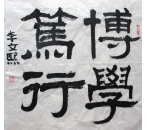 博學
篤行
年文熙